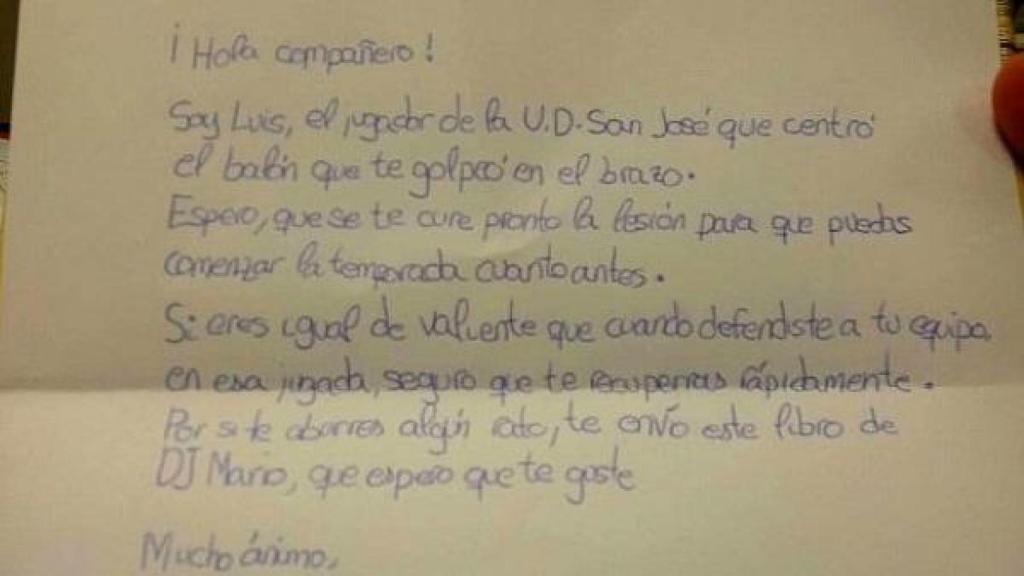 ¡Hola compañero!
Soy Luis, el jugador de la U.D. San José que centró
el balón que te golpeó en el brazo.
Espero, que se te cure pronto la lesión para que puedas
comenzar la temporada cuanto antes.
Si eres igual de valiente que cuando defendiste a tu equipo
en esa jugada, seguro que te recuperas rápidamente.
Por si te aburres algún rato, te envío este libro de
DJ Mario, que espero que te guste
Mucho ánimo,